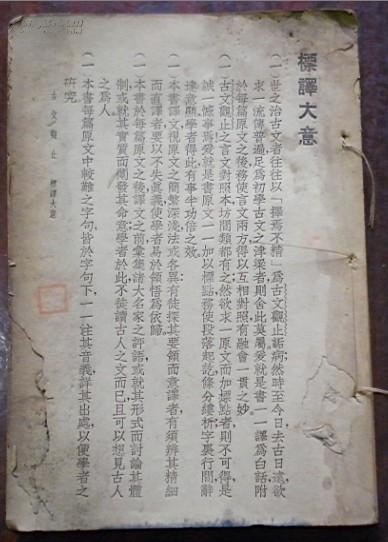 標譯大意
(一)世之治古文者往往以「擇焉不精」爲古文觀止詬病然時至今日去古日遠欲
求一流傳普遍足爲初學古文之津梁者則舍此莫屬爰就是書一一譯爲白話附
於每篇原文之後務使言文兩方得以互相對照有融會一貫之妙
(一)古文觀止之言文對照本坊間類都有之然欲求一原文而加標點者則不可得是
誠一憾事爰就是書原文一一加以標點務使段落起訖條分縷析字裏行間辭
達意顯學者得此有事半功倍之效
(一)本書譯文視原文之簡繁深淺法或各異有從採其要領而意譯者有須辨其精細
而直譯者要以不失眞義使學者易於領悟爲依歸
(一)本書於每篇原文之後譯文之前彙集諸大名家之評語或就其形式而討論其體
制或就其實質而闡發其命意學者於此不徒讀古人之文而已且可以想見古人
之爲人
(一)本書每篇原文中較難之字句皆於字句下一一註其音義詳其出處以便學者之
研究
古文觀止 標譯大意